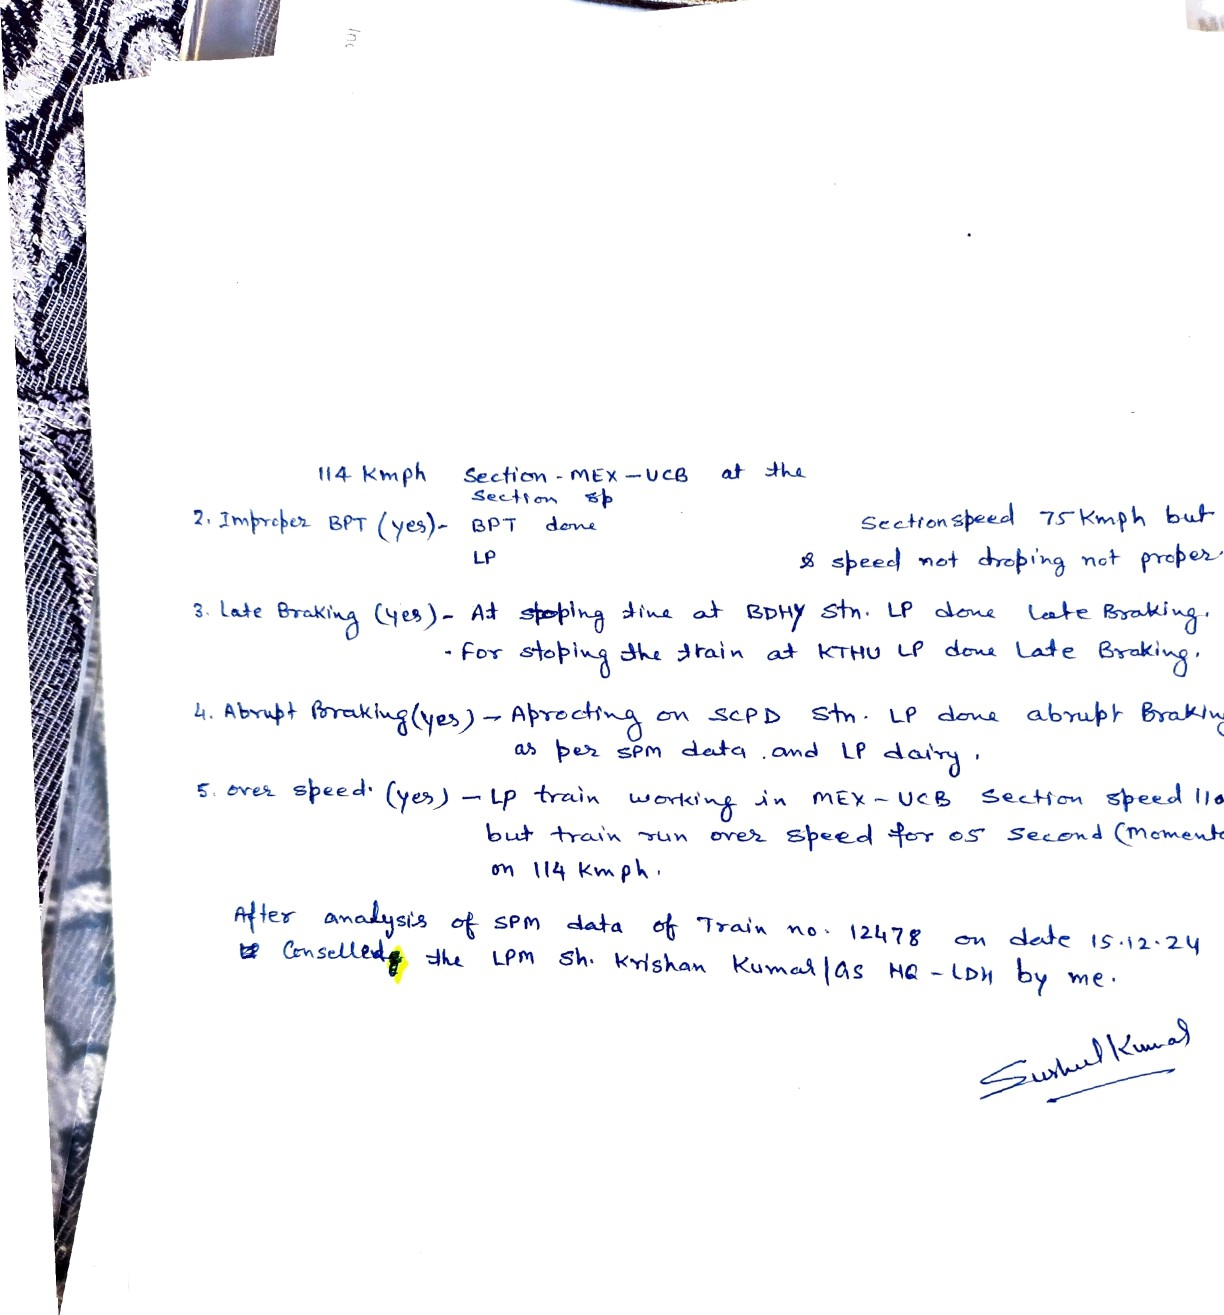 Inc
114 Kmph Section - MEX - UCB at the
Section sp
2. Improper BPT (yes) - BPT done Section speed 75 Kmph but
LP speed not droping not proper
3. Late Braking (yes) - At stoping time at BDHY Stn. LP done late Braking.
- For stoping the train at KTHU LP done Late Braking.
4. Abrupt Braking (yes) - Aprocting on SCPD Stn. LP done abrupt Braking
as per SPM data . and LP dairy .
5. over speed. (yes) - LP train working in MEX - UCB Section speed 110
but train run over speed for 05 Second (Momenta
on 114 Kmph .
After analysis of SPM data of Train no. 12478 on date 15.12.24
Conselled the LPM Sh. Krishan Kumar / GS HQ - LDH by me.
Susheel Kumar